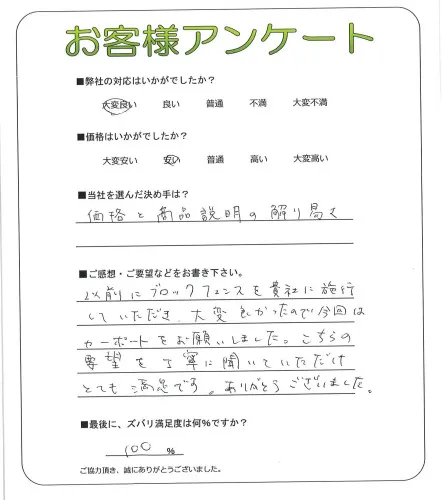 お客様アンケート
■弊社の対応はいかがでしたか？
大変良い 良い 普通 不満 大変不満
■価格はいかがでしたか？
大変安い 安い 普通 高い 大変高い
■当社を選んだ決め手は？
価格と商品説明の解り易さ
■ご感想・ご要望などをお書き下さい。
以前にブロックフェンスを貴社に施行
していただき、大変良かったので今回は
カーポートをお願いしました。こちらの
要望を丁寧に聞いていただけ
とても満足です。ありがとうございました。
■最後に、ズバリ満足度は何％ですか？
100 ％
ご協力頂き、誠にありがとうございました。